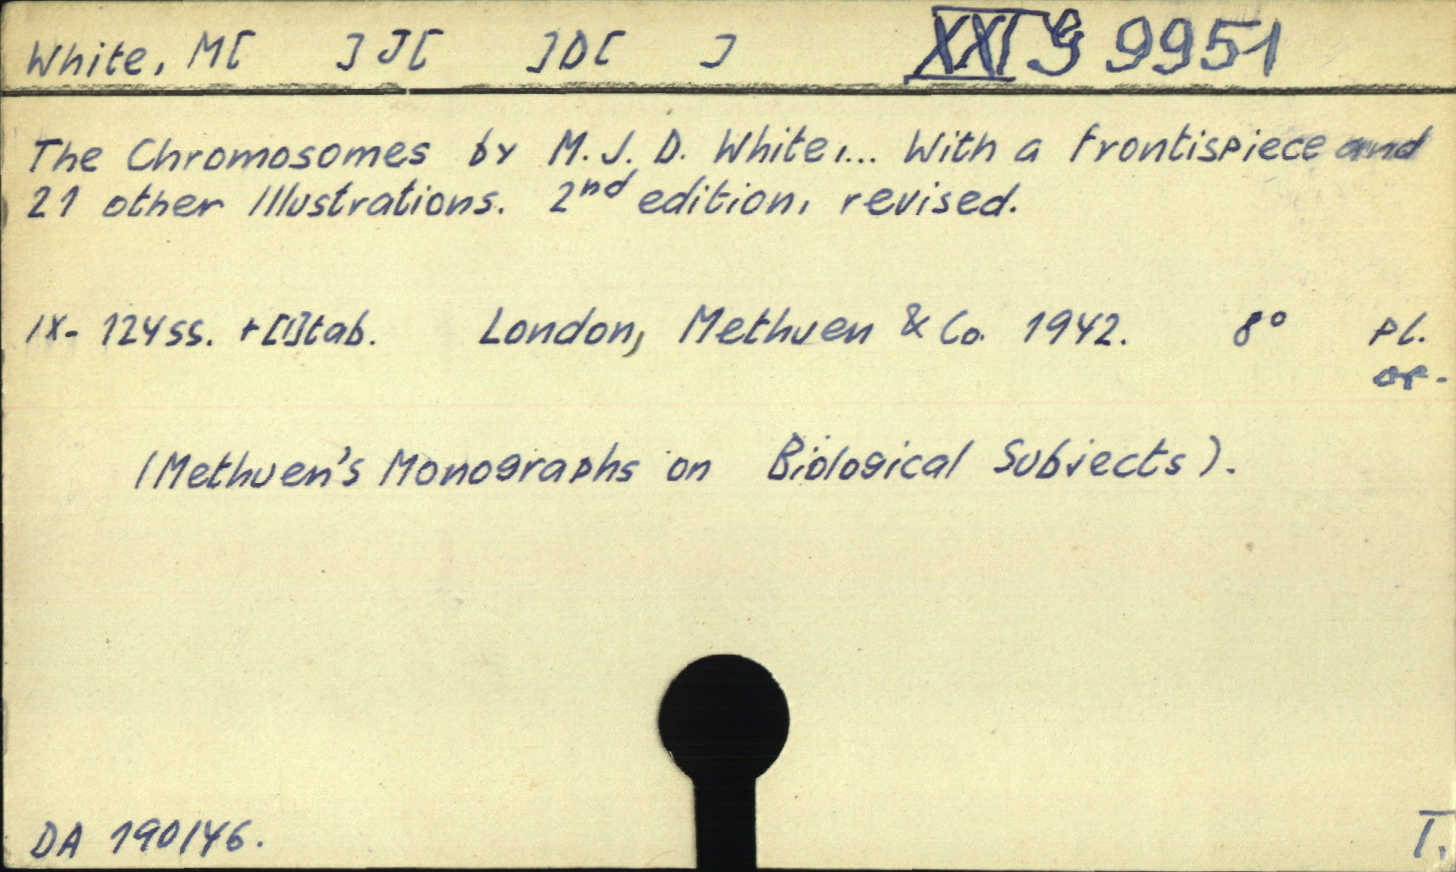 White, M[ ] J[ ] D[ ] XXI G 9951
The Chromosomes by M. J. D. White,... With a frontispiece and
21 other Illustrations. 2nd edition, revised.
IX- 124 ss. +[1]tab. London, Methuen & Co. 1942. 8° pl.
or.
(Methuen's Monographs on Biological Subjects).
DA 190/46. T.